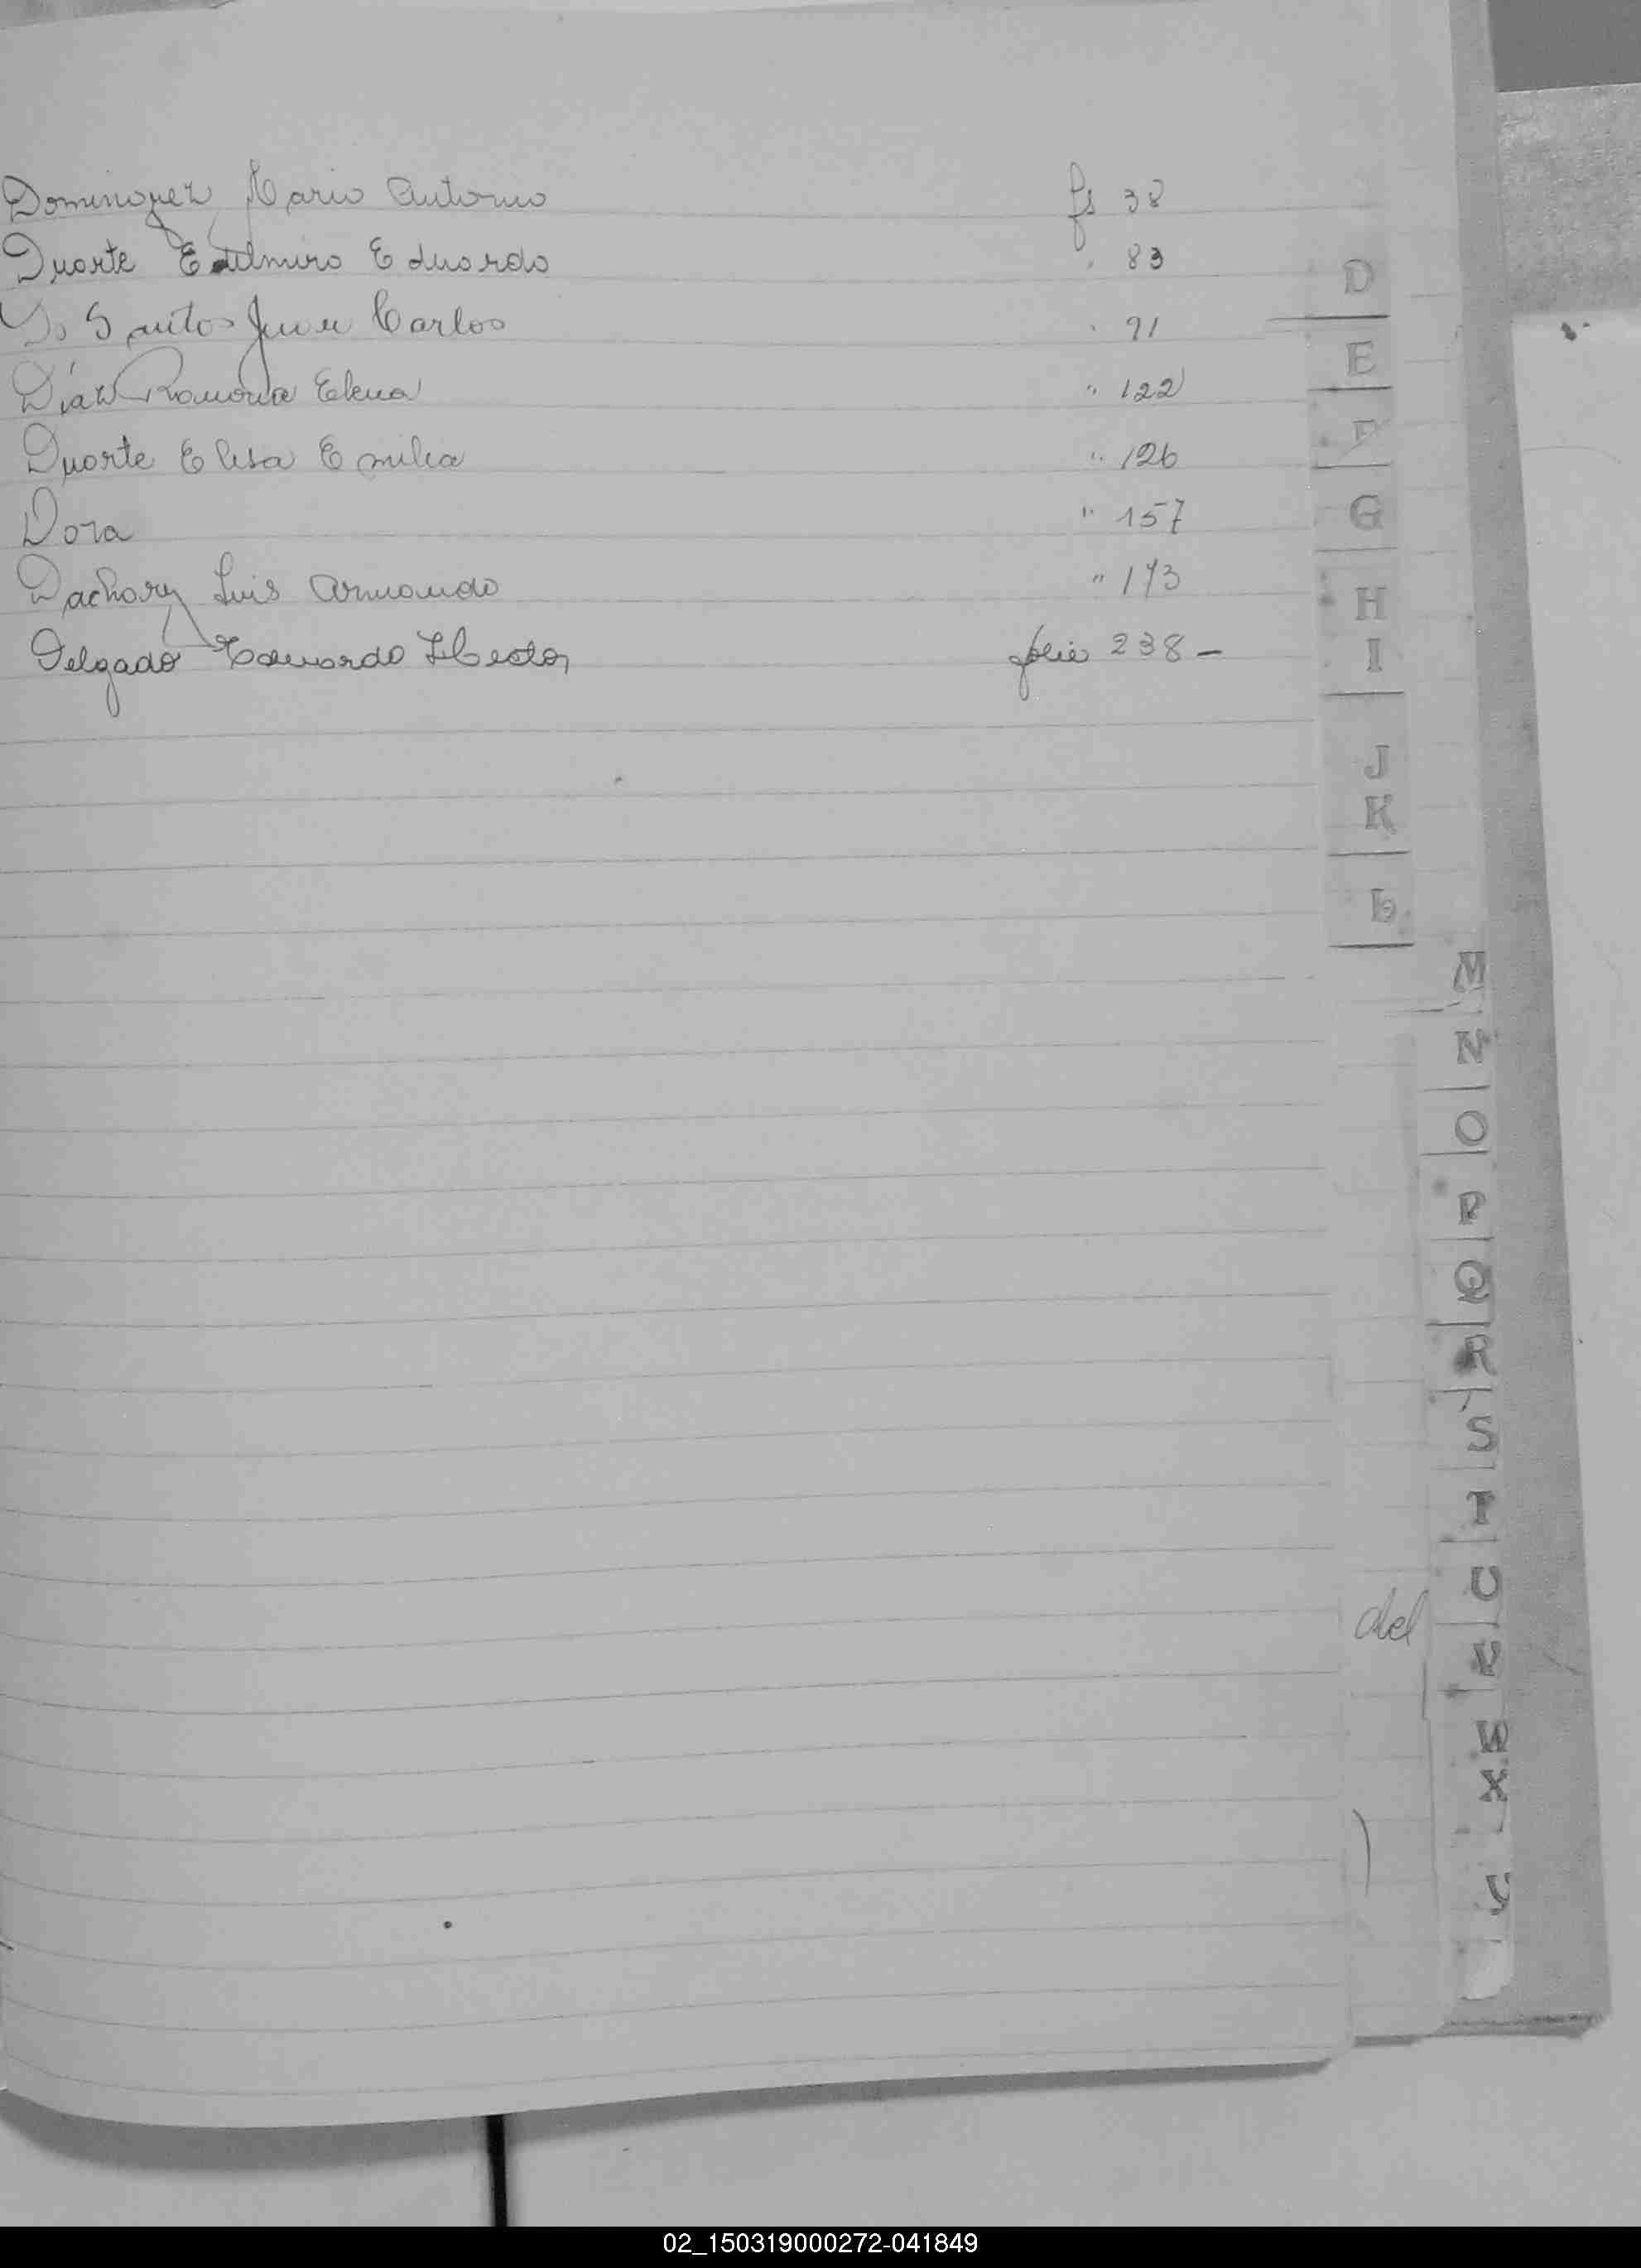 Dominguez Mario Antonio fs 38
Duarte Edelmiro Eduardo " 83
Santos Juan Carlos " 91
Díaz Ramona Elena " 122
Duarte Elisa Emilia " 126
Dora " 157
Dachary Luis Armando " 173
Delgado Eduardo Hector folio 238 -
D
E
F
G
H
I
J
K
L
M
N
O
P
Q
R
S
T
U
del
V
W
X
02_150319000272-041849